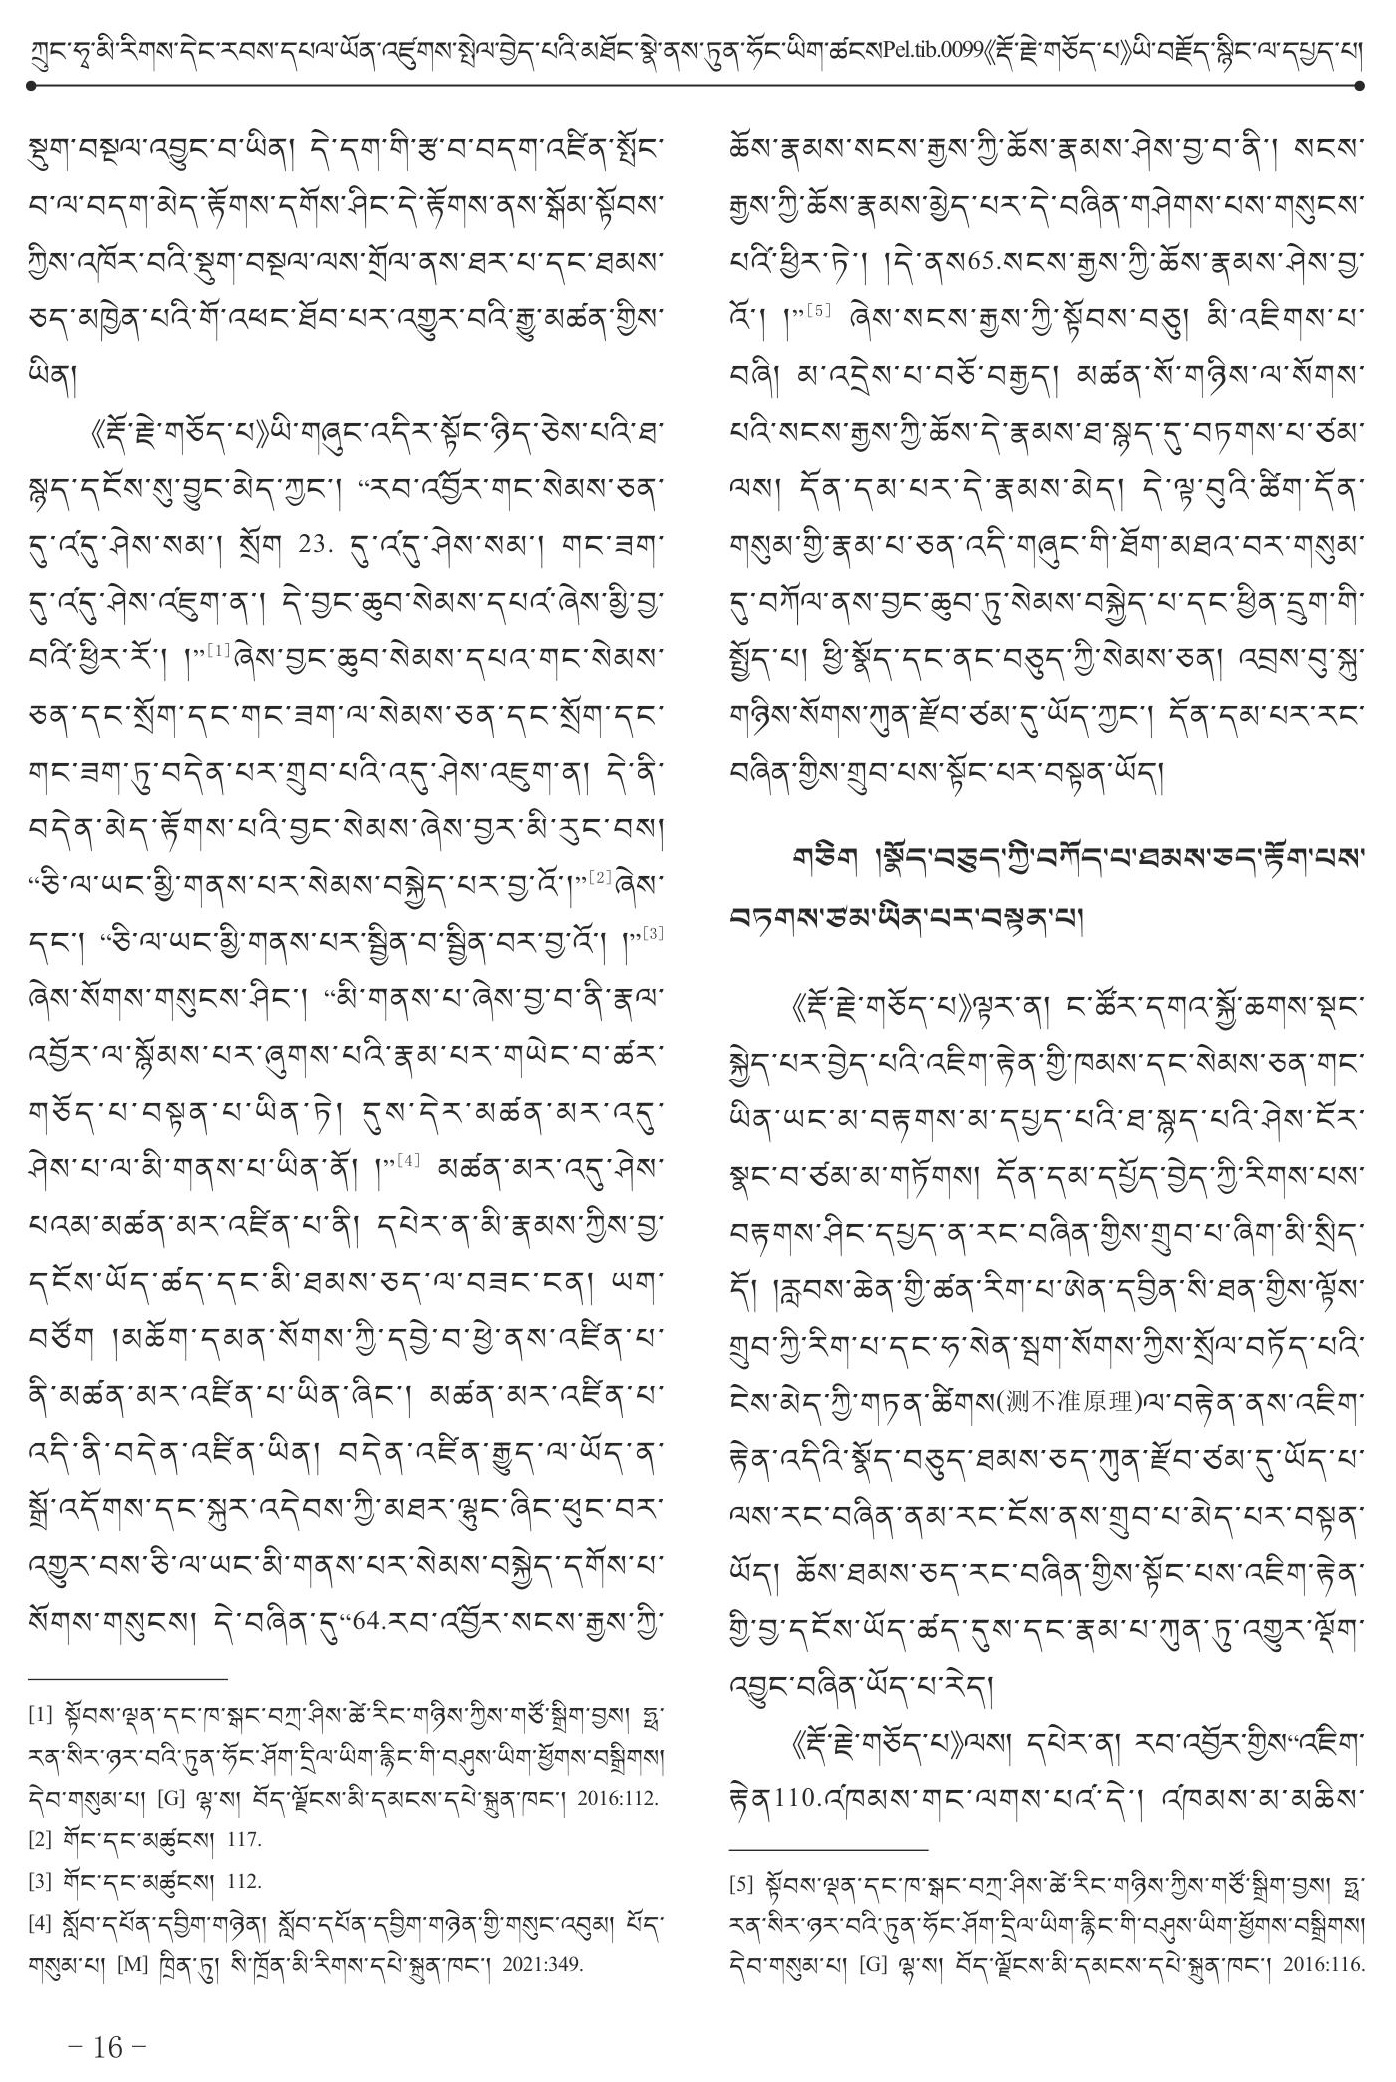 ཀྲུང་ཧྭ་མི་རིགས་དེང་རབས་དཔལ་ཡོན་འཛུགས་སྤེལ་བྱེད་པའི་མཐོང་སྣེ་ནས་ཏུན་ཧོང་ཡིག་ཚངསPel.tib.0099《རྡོ་རྗེ་གཅོད་པ》ཡི་བརྗོད་སྙིང་ལ་དཔྱད་པ།
སྡུག་བསྔལ་འབྱུང་བ་ཡིན། དེ་དག་གི་རྩ་བ་བདག་འཛིན་སྤོང་
བ་ལ་བདག་མེད་རྟོགས་དགོས་ཤིང་དེ་རྟོགས་ནས་སྒོམ་སྟོབས་
ཀྱིས་འཁོར་བའི་སྡུག་བསྔལ་ལས་གྲོལ་ནས་ཐར་པ་དང་ཐམས་
ཅད་མཁྱེན་པའི་གོ་འཕང་ཐོབ་པར་འགྱུར་བའི་རྒྱུ་མཚན་གྱིས་
ཡིན།
《རྡོ་རྗེ་གཅོད་པ》ཡི་གཞུང་འདིར་སྟོང་ཉིད་ཅེས་པའི་ཐ་
སྙད་དངོས་སུ་བྱུང་མེད་ཀྱང་། “རབ་འབྱོར་གང་སེམས་ཅན་
དུ་འདུ་ཤེས་སམ་། སྲོག 23. དུ་འདུ་ཤེས་སམ་། གང་ཟག་
དུ་འདུ་ཤེས་འཇུག་ན་། དེ་བྱང་ཆུབ་སེམས་དཔའ་ཞེས་མྱི་བྱ་
བའི་ཕྱིར་རོ་། །”[1]ཞེས་བྱང་ཆུབ་སེམས་དཔའ་གང་སེམས་
ཅན་དང་སྲོག་དང་གང་ཟག་ལ་སེམས་ཅན་དང་སྲོག་དང་
གང་ཟག་ཏུ་བདེན་པར་གྲུབ་པའི་འདུ་ཤེས་འཇུག་ན། དེ་ནི་
བདེན་མེད་རྟོགས་པའི་བྱང་སེམས་ཞེས་བྱར་མི་རུང་བས།
“ཅི་ལ་ཡང་མྱི་གནས་པར་སེམས་བསྐྱེད་པར་བྱ་འོ་།”[2]ཞེས་
དང་། “ཅི་ལ་ཡང་མྱི་གནས་པར་སྦྱིན་བ་སྦྱིན་བར་བྱ་འོ་། །”[3]
ཞེས་སོགས་གསུངས་ཤིང་། “མི་གནས་པ་ཞེས་བྱ་བ་ནི་རྣལ་
འབྱོར་ལ་སྙོམས་པར་ཞུགས་པའི་རྣམ་པར་གཡེང་བ་ཚར་
གཅོད་པ་བསྟན་པ་ཡིན་ཏེ། དུས་དེར་མཚན་མར་འདུ་
ཤེས་པ་ལ་མི་གནས་པ་ཡིན་ནོ། །”[4] མཚན་མར་འདུ་ཤེས་
པའམ་མཚན་མར་འཛིན་པ་ནི། དཔེར་ན་མི་རྣམས་ཀྱིས་བྱ་
དངོས་ཡོད་ཚད་དང་མི་ཐམས་ཅད་ལ་བཟང་ངན། ཡག་
བཙོག །མཆོག་དམན་སོགས་ཀྱི་དབྱེ་བ་ཕྱེ་ནས་འཛིན་པ་
ནི་མཚན་མར་འཛིན་པ་ཡིན་ཞིང་། མཚན་མར་འཛིན་པ་
འདི་ནི་བདེན་འཛིན་ཡིན། བདེན་འཛིན་རྒྱུད་ལ་ཡོད་ན་
སྒྲོ་འདོགས་དང་སྐུར་འདེབས་ཀྱི་མཐར་ལྷུང་ཞིང་ཕུང་བར་
འགྱུར་བས་ཅི་ལ་ཡང་མི་གནས་པར་སེམས་བསྐྱེད་དགོས་པ་
སོགས་གསུངས། དེ་བཞིན་དུ“64.རབ་འབྱོར་སངས་རྒྱས་ཀྱི་
[1] སྟོབས་ལྡན་དང་ཁ་སྒང་བཀྲ་ཤིས་ཚེ་རིང་གཉིས་ཀྱིས་གཙོ་སྒྲིག་བྱས། ཧྥ་
རན་སིར་ཉར་བའི་ཏུན་ཧོང་ཤོག་དྲིལ་ཡིག་རྙིང་གི་བཤུས་ཡིག་ཕྱོགས་བསྒྲིགས།
དེབ་གསུམ་པ། [G] ལྷ་ས། བོད་ལྗོངས་མི་དམངས་དཔེ་སྐྲུན་ཁང་། 2016:112.
[2] གོང་དང་མཚུངས། 117.
[3] གོང་དང་མཚུངས། 112.
[4] སློབ་དཔོན་དབྱིག་གཉེན། སློབ་དཔོན་དབྱིག་གཉེན་གྱི་གསུང་འབུམ། པོད་
གསུམ་པ། [M] ཁྲིན་ཏུ། སི་ཁྲོན་མི་རིགས་དཔེ་སྐྲུན་ཁང་། 2021:349.
ཆོས་རྣམས་སངས་རྒྱས་ཀྱི་ཆོས་རྣམས་ཤེས་བྱ་བ་ནི་། སངས་
རྒྱས་ཀྱི་ཆོས་རྣམས་མྱེད་པར་དེ་བཞིན་གཤེགས་པས་གསུངས་
པའི་ཕྱིར་ཏེ་། །དེ་ནས65.སངས་རྒྱས་ཀྱི་ཆོས་རྣམས་ཤེས་བྱ་
འོ་། །”[5] ཞེས་སངས་རྒྱས་ཀྱི་སྟོབས་བཅུ། མི་འཇིགས་པ་
བཞི། མ་འདྲེས་པ་བཅོ་བརྒྱད། མཚན་སོ་གཉིས་ལ་སོགས་
པའི་སངས་རྒྱས་ཀྱི་ཆོས་དེ་རྣམས་ཐ་སྙད་དུ་བཏགས་པ་ཙམ་
ལས། དོན་དམ་པར་དེ་རྣམས་མེད། དེ་ལྟ་བུའི་ཚིག་དོན་
གསུམ་གྱི་རྣམ་པ་ཅན་འདི་གཞུང་གི་ཐོག་མཐའ་བར་གསུམ་
དུ་བཀོལ་ནས་བྱང་ཆུབ་ཏུ་སེམས་བསྐྱེད་པ་དང་ཕྱིན་དྲུག་གི་
སྤྱོད་པ། ཕྱི་སྣོད་དང་ནང་བཅུད་ཀྱི་སེམས་ཅན། འབྲས་བུ་སྐུ་
གཉིས་སོགས་ཀུན་རྫོབ་ཙམ་དུ་ཡོད་ཀྱང་། དོན་དམ་པར་རང་
བཞིན་གྱིས་གྲུབ་པས་སྟོང་པར་བསྟན་ཡོད།
གཅིག །སྣོད་བཅུད་ཀྱི་བཀོད་པ་ཐམས་ཅད་རྟོག་པས་
བཏགས་ཙམ་ཡིན་པར་བསྟན་པ།
《རྡོ་རྗེ་གཅོད་པ》ལྟར་ན། ང་ཚོར་དགའ་སྐྱོ་ཆགས་སྡང་
སྐྱེད་པར་བྱེད་པའི་འཇིག་རྟེན་གྱི་ཁམས་དང་སེམས་ཅན་གང་
ཡིན་ཡང་མ་བརྟགས་མ་དཔྱད་པའི་ཐ་སྙད་པའི་ཤེས་ངོར་
སྣང་བ་ཙམ་མ་གཏོགས། དོན་དམ་དཔྱོད་བྱེད་ཀྱི་རིགས་པས་
བརྟགས་ཤིང་དཔྱད་ན་རང་བཞིན་གྱིས་གྲུབ་པ་ཞིག་མི་སྲིད་
དོ། །རླབས་ཆེན་གྱི་ཚན་རིག་པ་ཨེན་དབྱིན་སི་ཐན་གྱིས་ལྟོས་
གྲུབ་ཀྱི་རིག་པ་དང་ཧ་སེན་སྦག་སོགས་ཀྱིས་སྲོལ་བཏོད་པའི་
ངེས་མེད་ཀྱི་གཏན་ཚིགས(测不准原理)ལ་བརྟེན་ནས་འཇིག་
རྟེན་འདིའི་སྣོད་བཅུད་ཐམས་ཅད་ཀུན་རྫོབ་ཙམ་དུ་ཡོད་པ་
ལས་རང་བཞིན་ནམ་རང་ངོས་ནས་གྲུབ་པ་མེད་པར་བསྟན་
ཡོད། ཆོས་ཐམས་ཅད་རང་བཞིན་གྱིས་སྟོང་པས་འཇིག་རྟེན་
གྱི་བྱ་དངོས་ཡོད་ཚད་དུས་དང་རྣམ་པ་ཀུན་ཏུ་འགྱུར་ལྡོག་
འབྱུང་བཞིན་ཡོད་པ་རེད།
《རྡོ་རྗེ་གཅོད་པ》ལས། དཔེར་ན། རབ་འབྱོར་གྱིས“འཇིག་
རྟེན110.འཁམས་གང་ལགས་པའ་དེ་། འཁམས་མ་མཆིས་
[5] སྟོབས་ལྡན་དང་ཁ་སྒང་བཀྲ་ཤིས་ཚེ་རིང་གཉིས་ཀྱིས་གཙོ་སྒྲིག་བྱས། ཧྥ་
རན་སིར་ཉར་བའི་ཏུན་ཧོང་ཤོག་དྲིལ་ཡིག་རྙིང་གི་བཤུས་ཡིག་ཕྱོགས་བསྒྲིགས།
དེབ་གསུམ་པ། [G] ལྷ་ས། བོད་ལྗོངས་མི་དམངས་དཔེ་སྐྲུན་ཁང་། 2016:116.
– 16 –